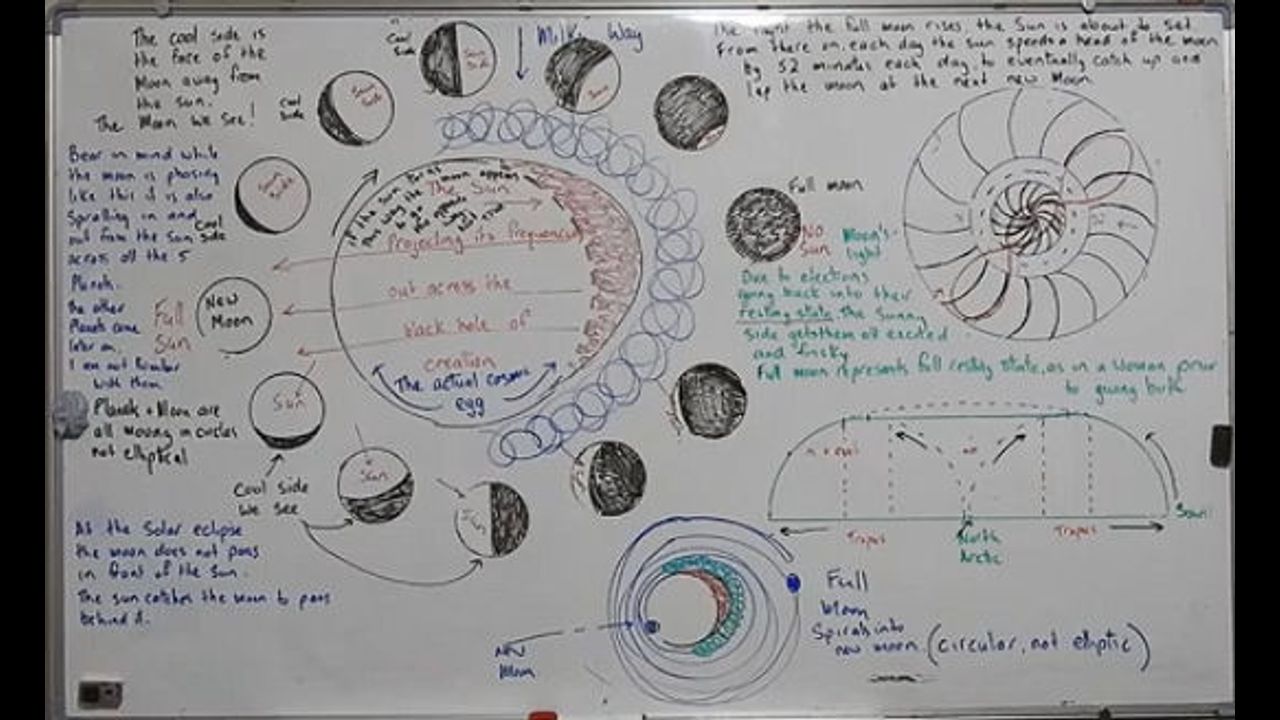 The cool side is
the face of the
Moon away from
the sun.
The Moon we see!
Cool
Side
Milky Way
the full moon rises the Sun is about to set
From there on, each day the sun speeds a head of the moon
by 52 minutes each day, to eventually catch up and
lap the moon at the next new Moon
Cool
Side
Bear in mind while
the moon is phasing
like this it is also
Spiralling in and
out from the sun
across all the 5
Planets.
the other
Planets come
later on.
I am not familiar
with them
Cool
Side
Full
Sun
New
Moon
Planets + Moon are
all moving in circles
not elliptical
Sun
Sun
Cool side
we see
At the Solar eclipse
the moon does not pass
in front of the Sun.
The sun catches the moon to pass
behind it.
If the sun turns
this way the moon appears
The Sun
Projecting its frequencies
out across the
black hole of
creation
The actual cosmic
egg
Full moon
NO
Sun
Moon's
light
Due to electrons
going back into their
resting state, the Sunny
Side gets them all excited
and frisky
Full moon represents full resting state, as in a woman prior
to giving birth
Tropics
North
Arctic
Tropics
New
Moon
Full
Moon
Spirals into
new moon (circular, not elliptic)